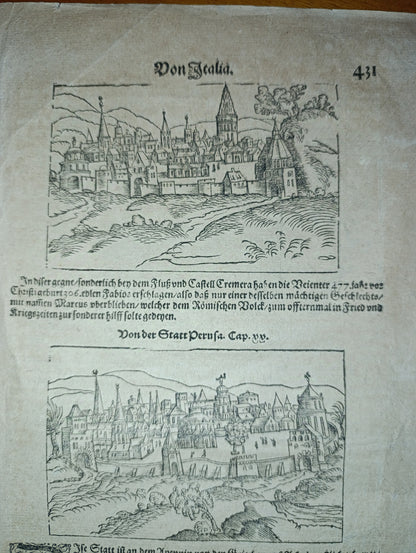 Von Italia.
431
In diser gegne/sonderlich bey dem Fluß vnd Castell Cremera haben die Veienter 477. jahr vor
Christi geburt 306. edlen Fabios erschlagen/also daß nur einer desselben mächtigen Geschlechts/
mit nam̃en Marcus vberblieben/welcher dem Römischen Volck/zum offternmal in Fried vnd
Kriegszeiten zur sonderer hilff solte gedeyen.
Von der Statt Perusa. Cap. xv.
Jse Statt ist an dem Apennin